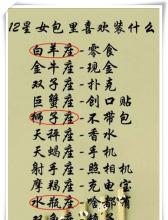 12星女包里喜欢装什么
白羊座-零食
金牛座-现金
双子座-扑克
巨蟹座-创口贴
狮子座-不带包
天秤座-香水
天蝎座-手机
射手座-照相机
摩羯座-充电宝
水瓶座-啥都有